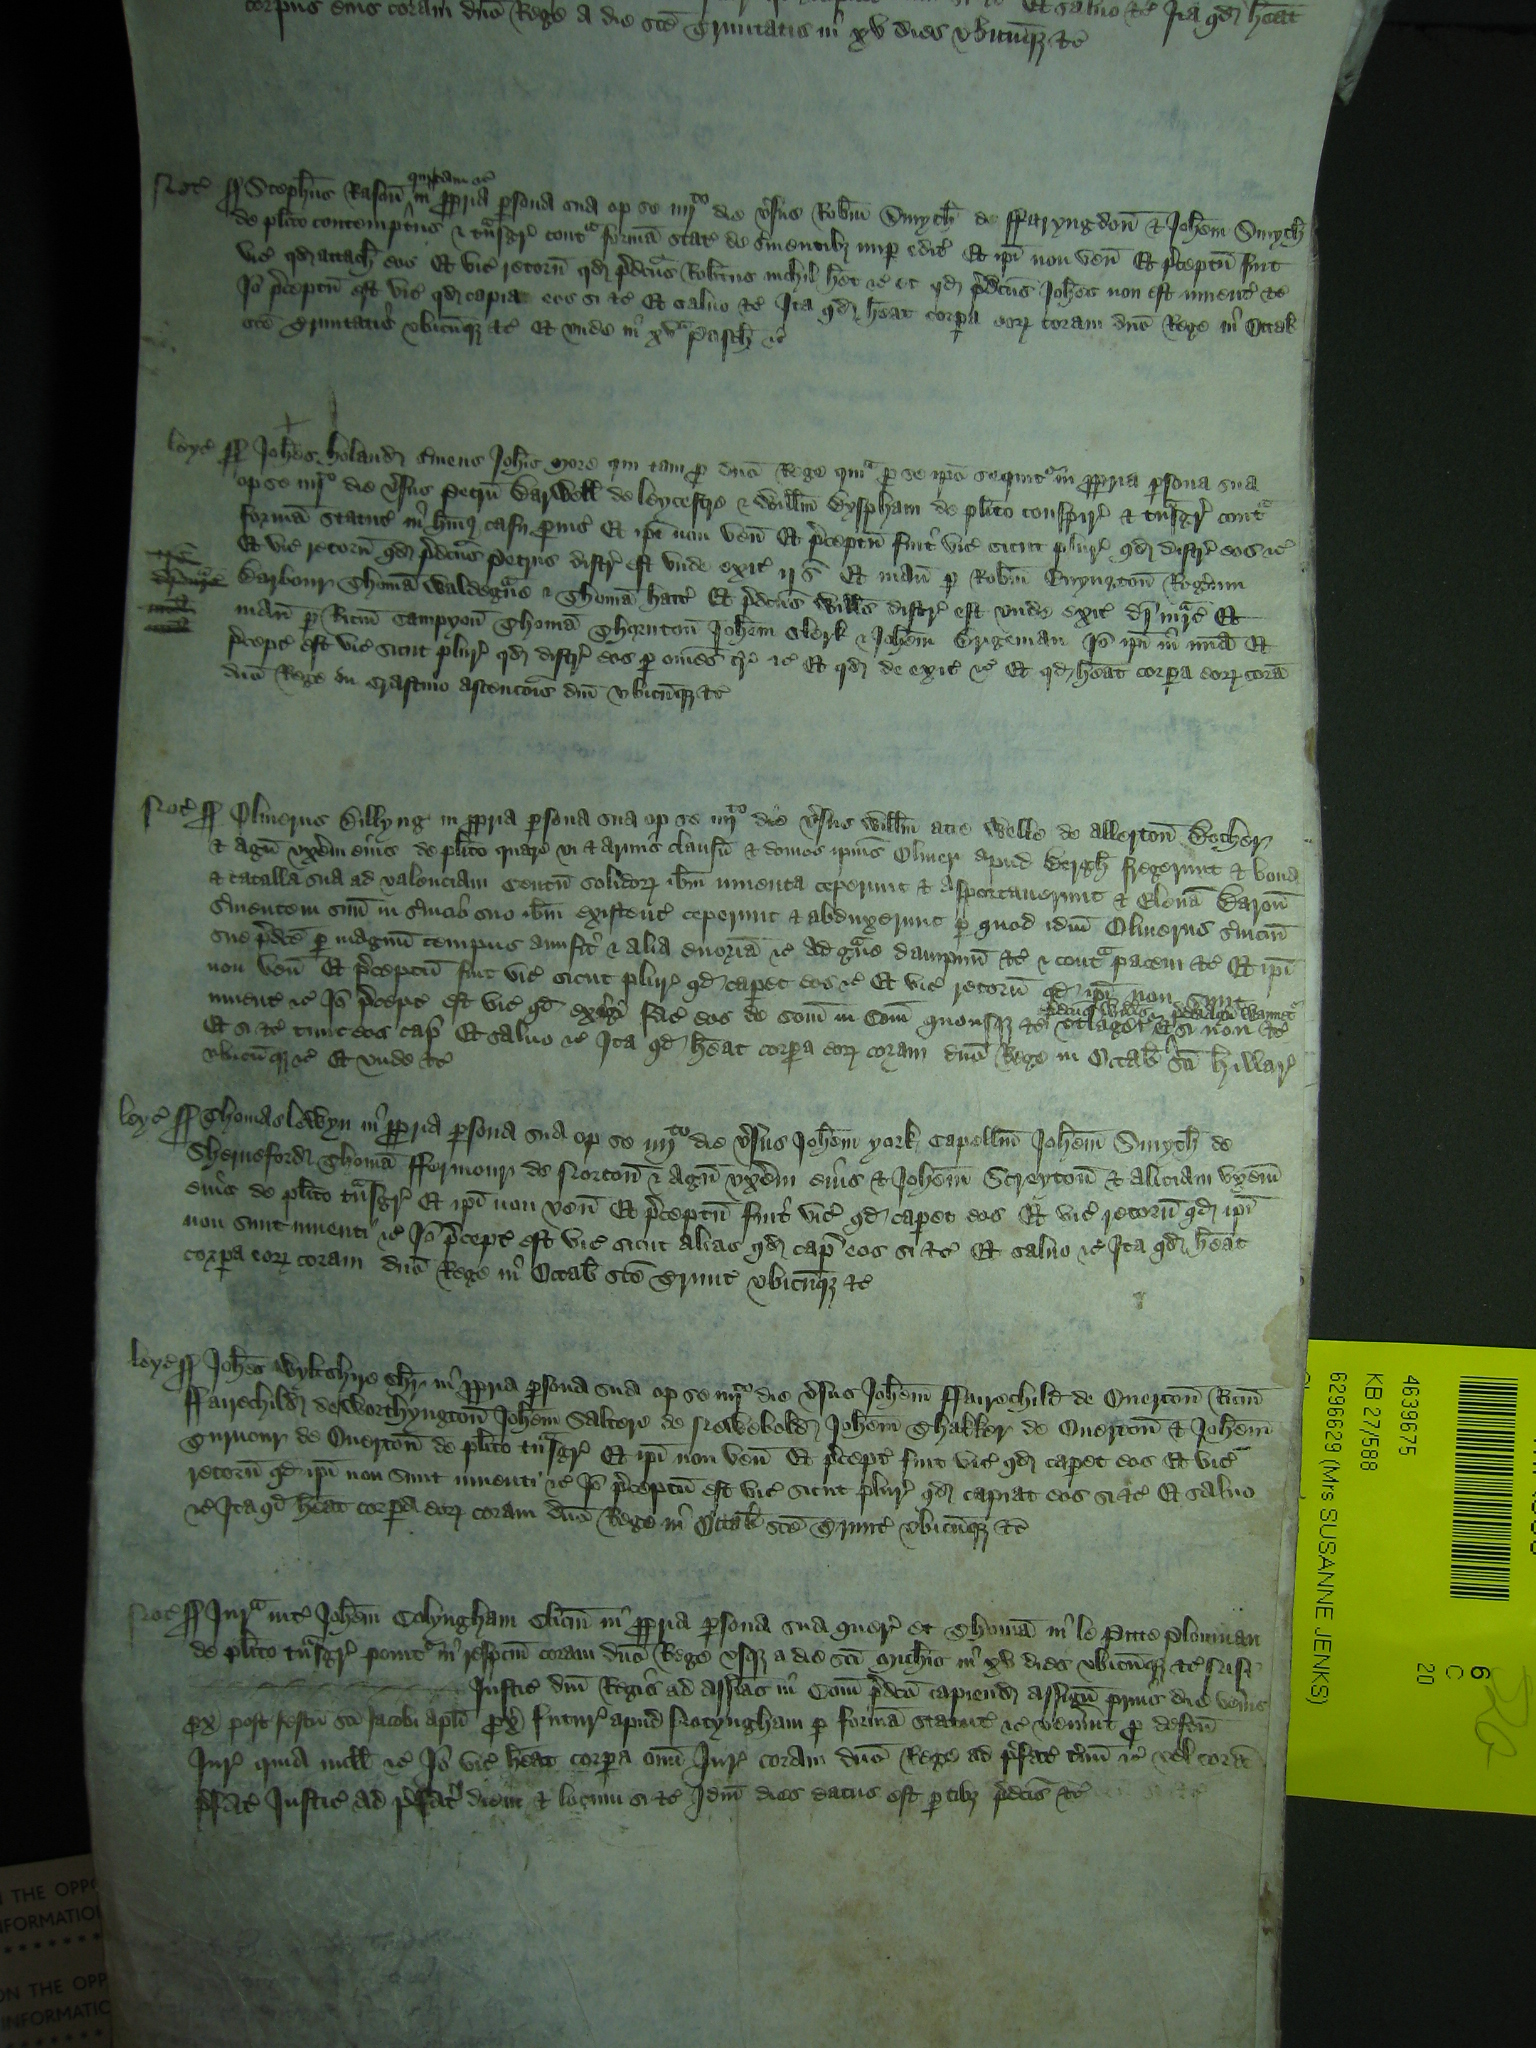 corpus eius coram dno Rege a die sce Trinitatis in xv dies vbicuq; &c
Et saluo &c Ita qd heat
Not' ss Stephus Rasou qui tam &c in ppria psona sua op se iiijto die vsus Robtm Smyth de ffaryngdon & Johem Smyth
de plito contemptus & tnsgr' conta forma stat' de seruientibz nup edit' Et ipi non ven' Et pceptu fuit
vic' qd attach' eos Et vic' retorn' qd pdcus Robtus nichil het &c et qd pdcus Johes non est inuent' &c
Jo pceptu est vic' qd capiat eos si &c Et saluo &c Ita qd heat corpa eor' coram dno Rege in Octab'
sce Trinitatis vbicuq; &c Et vnde in xva pasch' &c
Leyc' ss Johes Holand seruiens Johis More qui tam p dno Rege qm p se ipo sequit' in ppria psona sua
op se iiijto die vsus Petru Barwell de Leycestre & Willm Dyspham de plito conspir' & tnsgr' conta
forma statut' in hmoi casu puis' Et ipi non ven' Et pceptu fuit vic' sicut plur' qd distr' eos &c
Et vic' retorn' qd pdcus Petrus distr' est vnde exit' ij s Et man' p Robtm Rogerum
Barbour Thoma Waldegue & Thoma Hatt' Et pdcus Wills distr' est vnde exit' di marc' Et
man' p Ricm Campyon Thoma Thornton Johem Clerk & Johem Jo ipi in mia Et
pcept' est vic' sicut plur' qd distr' eos p omes tr' &c Et qd de exit' &c Et qd heat corpa eor' cora
dno Rege in Crastino ascencois dni vbicuq; &c
Not' ss Oliuerus Billyng in ppria psona sua op se iiijto die vsus Willm atte Welle de Allerton Bocher
& Agn' vxem eius de plito quare vi & armis clausu & domos ipius Oliueri apud Bergh fregerunt & bona
& catalla sua ad valenciam Centu solidor' ibm inuenta ceperunt & asportauerunt & Elena Baron
seruientem sua in seruicio suo ibm existent' ceperunt & abduxerunt p quod idem Oliuerus seruiciu
sue pdce p magnu tempus amisit & alia enormia &c ad gue dampnu &c & conta pacem &c Et ipi
non ven' Et pceptu fuit vic' sicut plur' qd capet eos &c Et vic' retorn' qd ipi non sunt
inuent' &c Jo pcept' est vic' qd exigi fac' eos de Com' in Com' quousq; &c pdcus Wills vtlaget' & pdca Agn' Wauiet' Et si non &c
Et si &c tunc eos cap' Et saluo &c Ita qd heat corpa eor' coram dno Rege in Octab' sci Hillar'
vbicuq; &c Et vnde &c
Leyc' ss Thomas Lewyn in ppria psona sua op se iiijto die vsus Johem York Capellm Johem Smyth de
Sherneford Thoma ffermour de Norton & Agn' vxem eius & Johem Streyton & Aliciam vxem
eius de plito tnsgr' Et ipi non ven' Et pceptu fuit vic' qd capet eos Et vic' retorn' qd ipi
non sunt inuenti &c Jo pcept' est vic' sicut alias qd cap' eos si &c Et saluo &c Ita qd heat
corpa eor' coram dno Rege in Octab' sce Trinit' vbicuq; &c
Leyc' ss Johes Wyltshire Chr' in ppria psona sua op se iiijto die vsus Johem ffairechild de Ouerton Ricm
ffairechild de Worthyngton Johem Saltere de Newbold Johem Shakker de Ouerton & Johem
Turnour de Ouerton de plito tnsgr' Et ipi non ven' Et pcept' fuit vic' qd capet eos Et vic'
retorn' qd ipi non sunt inuenti &c Jo pceptu est vic' sicut plur' qd capiat eos si &c Et saluo
&c Ita qd heat corpa eor' coram dno Rege in Octab' sce Trinit' vbicuq; &c
Not' ss Jura int' Johem Colyngham Clicu in ppria psona sua quer' et Thoma in le Pitte Plouman
de plito tnsgr' ponit' in respcm coram dno Rege vsq; a die sci Michis in xv dies vbicuq; &c Nisi
Justic' dni Regis ad assias in Com' pdco capiend' assign' prius die veneris
px' post festu sci Jacobi apli px' futur' apud Notyngham p forma statut' &c venint p defcu
Jur' quia null' &c Jo vic' heat corpa oim Jur' coram dno Rege ad pfat' tmu &c vel cora
pfat' Justic' ad pfat' diem & locum si &c Idem dies datus est ptibz pdcis &c
4639675
KB 27/588
6296629 (Mrs SUSANNE JENKS)
6
C
20
N THE OPPO
NFORMATION
ON THE OPP
INFORMATIO